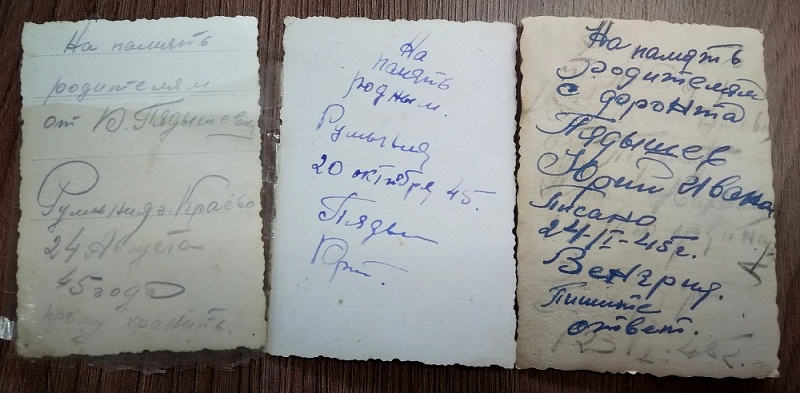 На память
родителям
от Ю. Пядышева
Румыния г. Краёва
24 Августа
45 года
прошу хранить.
На
память
родным.
Румыния
20 октября 45.
Пядыш
Юрий.
На память
Родителям
с фронта
Пядышев
Юрий Иванов
Писано
24-II-45г.
Венгрия.
Пишите
ответ.